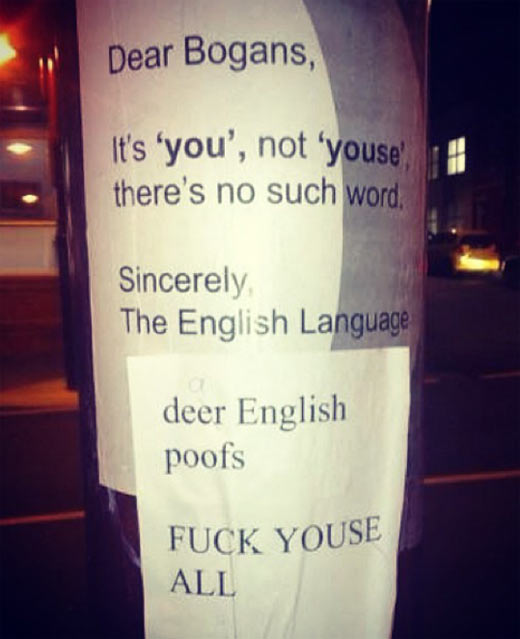 Dear Bogans,
It's 'you', not 'youse',
there's no such word.
Sincerely,
The English Language
deer English
poofs
FUCK YOUSE
ALL